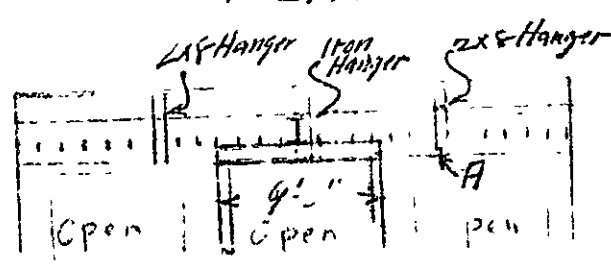 2x8 Hanger
Iron
Hanger
2x8 Hanger
A
9'-"
Open
Open
pen